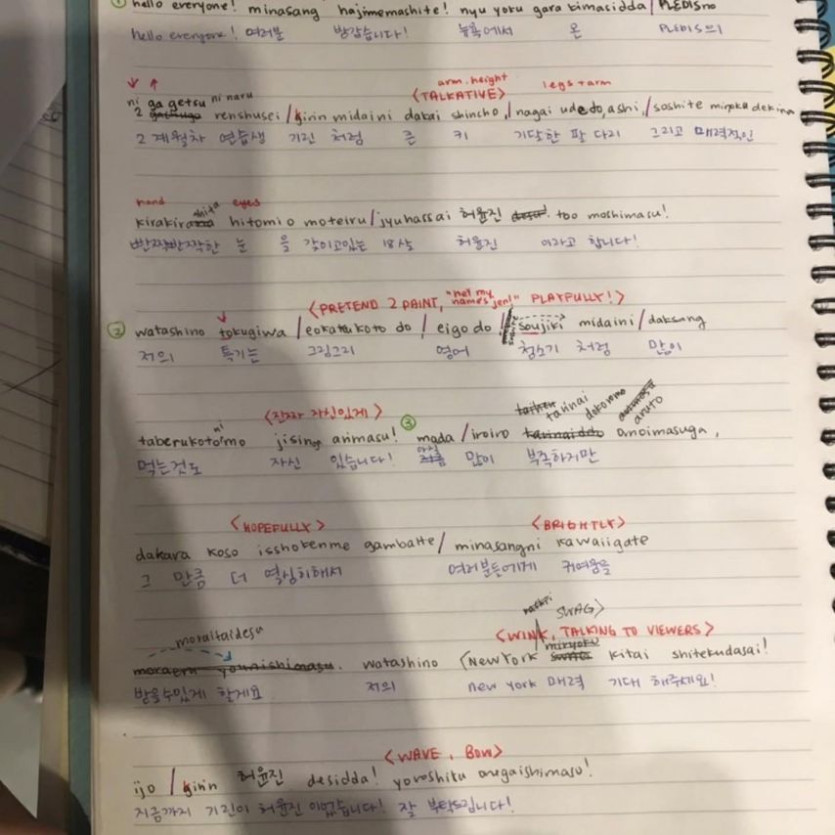 ① hello everyone! minasang hajimemashite! nyu yoku gara kimasidda/PLEDISno
hello everyone! 여러분 방갑습니다! 뉴욕에서 온 PLEDIS의
arm.height legs+arm
ni ga getsu ni naru <TALKATIVE>
2 renshusei/kirin midaini dakai shincho,/nagai udedo,ashi,/soshite
2 개월차 연습생 기린 처럼 큰 키 기달한 팔 다리 그리고 매력적인
hand eyes
kirakira shita hitomio moteiru/jyuhassai 허윤진 too moshimasu!
빤짝빤짝한 눈 을 갖이고있는 18살 허윤진 이라고 합니다!
<PRETEND 2 PAINT, "not my names jen!" PLAYFULLY!>
② watashino tokugiwa/eokatukoto do/eigo do/soujiki midaini/daksang
저의 특기는 그림그리 영어 청소기 처럼 많이
<진짜 자신있게> tarinai dokormo
taberukotoni mo jising arimasu! ③ mada/iroiro omoimasuga,
먹는것도 자신 있습니다! 많이 부족하지만
<HOPEFULLY> <BRIGHTLY>
dakara koso isshokenme gambatte/minasangni kawaiigate
그 만큼 더 열심히해서 여러분들에게 귀여움을
SWAG>
moraitaidesu <WINK, TALKING TO VIEWERS>
watashino (NEWYORK miryoku kitai shitekudasai!
받을수있게 할게요 저의 new york 매력 기대 해주세요!
<WAVE, BOW>
ijo/kirin 허윤진 desidda! yoroshiku onegaishimasu!
지금까지 기린이 허윤진 이었습니다! 잘 부탁드립니다!